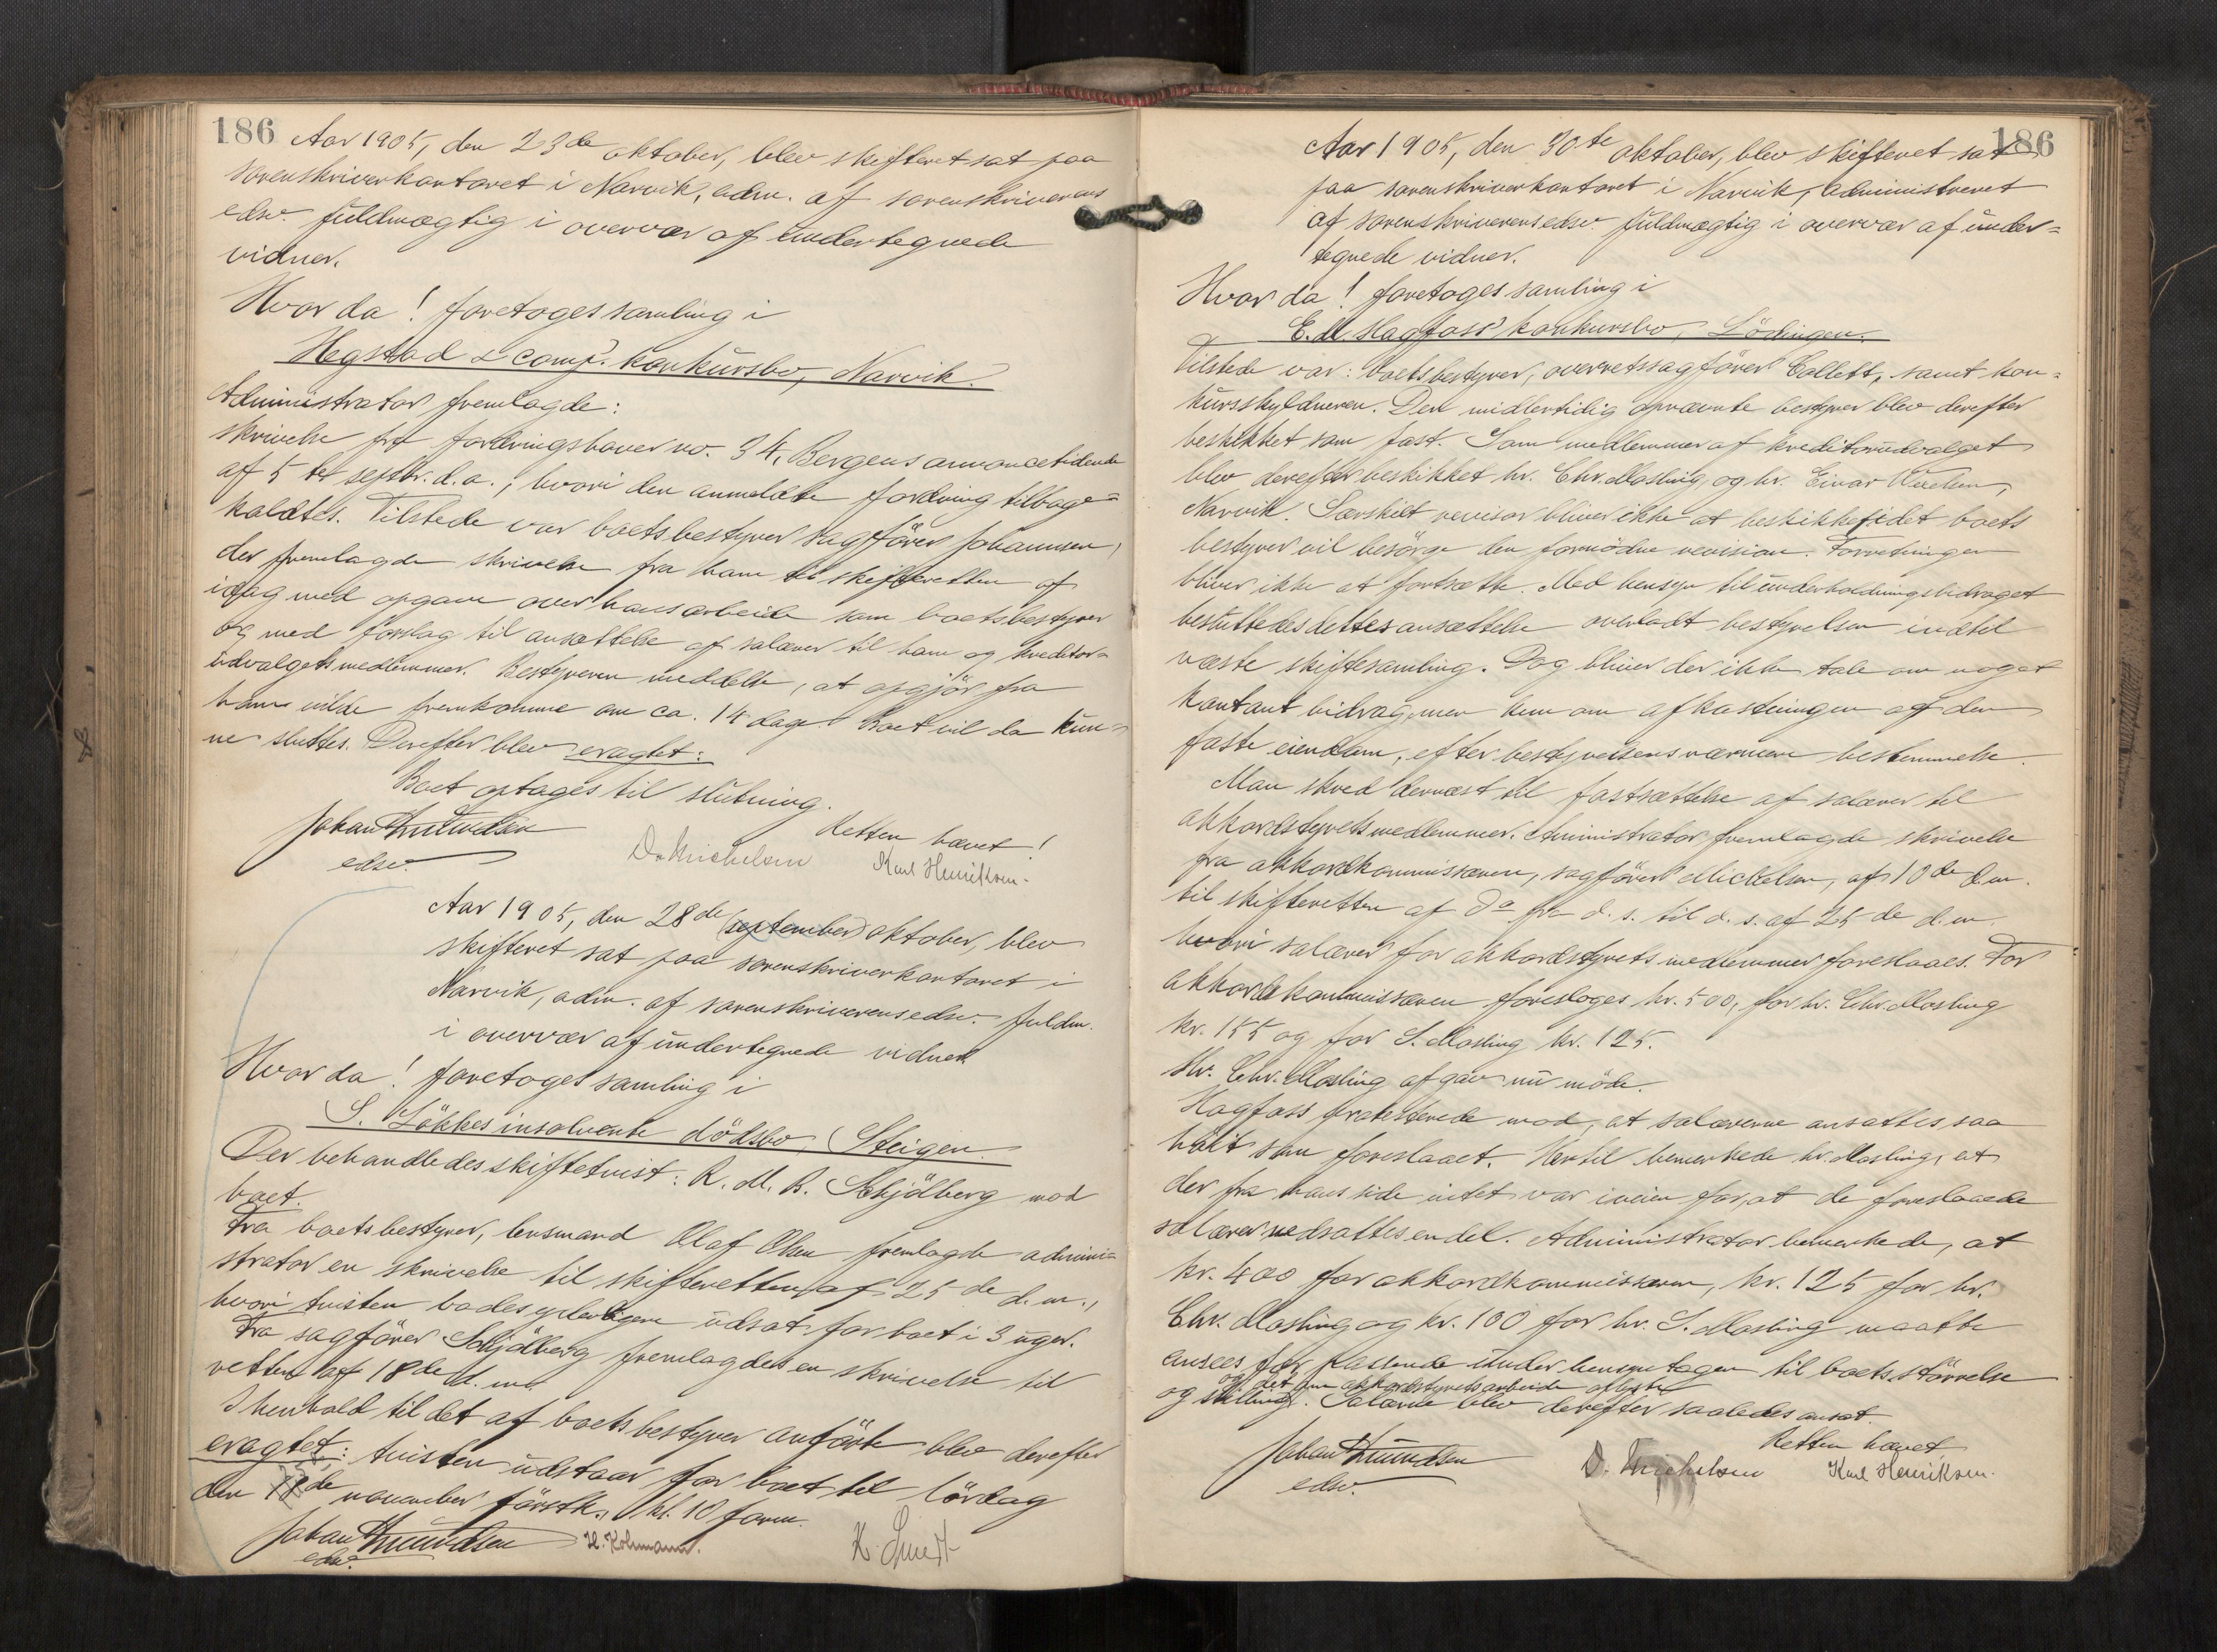 186
Aar 1905, den 23de oktober, blev skifteret sat paa
sorenskriverkontoret i Narvik, adm. af sorenskriverens
edsv. fuldmægtig i overvær af undertegnede
vidner.
Hvor da! foretoges samling i
Hegstad & comp. konkursbo, Narvik.
Administrator fremlagde:
skrivelse fra fordringshaver no. 34, Bergens annoncetidende
af 5te septbr. d.a., hvori den anmeldte fordring tilbage=
kaldtes. Tilstede var boets bestyrer sagfører Johannsen,
der fremlagde skrivelse fra ham til skifteretten af
idag med opgave over hans arbeide som boets bestyrer
og med forslag til ansættelse af salærer til ham og kreditor=
udvalgets medlemmer. Bestyreren meddelte, at opgjör fra
ham vilde fremkomme om ca. 14 dage. Boet vil da kun=
ne sluttes. Derefter blev eragtet:
Boet optages til slutning.
Retten hævet!
Johan Knudsen
edsv.
D. Michelsen
Karl Henriksen.
Aar 1905, den 28de (september) oktober, blev
skifteret sat paa sorenskriverkontoret i
Narvik, adm. af sorenskriverens edsv. fuldm.
i overvær af undertegnede vidner
Hvor da! foretoges samling i
S. Løkkes insolvente dödsbo, Steigen.
Der behandledes skiftetvist: R. M. B. Schjölberg mod
boet.
Fra boets bestyrer, lensmand Olaf Olsen fremlagde admini=
strator en skrivelse til skifteretten af 25de d.m.,
hvori tvisten bades yderligere udsat for boet i 3 uger.
Fra sagfører Schjölberg fremlagdes en skrivelse til
retten af 18de d.m.
I henhold til det af boets bestyrer anförte blev derefter
eragtet: tvisten udstaar for boet til lördag
den de november förstk., kl. 10 form.
Johan Knudsen
edsv.
H. Kohmann.
K. Smedt
186
Aar 1905, den 30te oktober, blev skifteret sat
paa sorenskriverkontoret i Narvik, administreret
af sorenskriverens edsv. fuldmægtig i overvær af under=
tegnede vidner.
Hvor da! foretoges samling i
E. M. Hagfoss' konkursbo, Lödingen.
Tilstede var: boets bestyrer, overretssagförer Collett, samt kon=
kursskyldneren. Den midlertidig opnævnte bestyrer blev derefter
beskikket som fast. Som medlemmer af kreditorudvalget
blev derefter beskikket hr. Chr. Mosling og hr. Einar
Narvik. Særskilt revisor bliver ikke at beskikke, idet boets
bestyrer vil besörge den fornödne revision. Forretningen
bliver ikke at fortsætte. Med hensyn til underholdningsbidraget
besluttedes dettes ansættelse overladt bestyrelsen indtil
næste skiftesamling. Dog bliver der ikke tale om noget
kontant bidrag, men kun om afkastningen af den
faste eiendom, efter bestyrelsens nærmere bestemmelse.
Man skred dernæst til fastsættelse af salærer til
akkordstyrets medlemmer. Administrator fremlagde skrivelse
fra akkordkommissæren, sagförer Michelsen, af 10de d.m.
til skifteretten af do fra d. s. til d. s. af 25de d.m.
hvori salærer for akkordstyrets medlemmer foreslaaes. For
akkordkommissæren foresloges kr. 500, for hr. Chr. Mosling
kr. 155 og for S. Mosling kr. 125.
Hr. Chr. Mosling afgav nu möde.
Hagfoss protesterede mod, at salærerne ansattes saa
höit som foreslaaet. Hertil bemerkede hr. Mosling, at
der fra hans side intet var iveien for, at de foreslaaede
salærer nedsattes endel. Administrator bemerkede, at
kr. 400 for akkordkommissæren, kr. 125 for hr.
Chr. Mosling og kr. 100 for hr. S. Mosling maatte
ansees for passende under hensyntagen til boets störrelse
og det om akkordstyrets arbeide oplyste
og stilling. Salærene blev derefter saaledes ansat.
Retten hævet
Johan Knudsen
edsv.
D. Michelsen
Karl Henriksen.